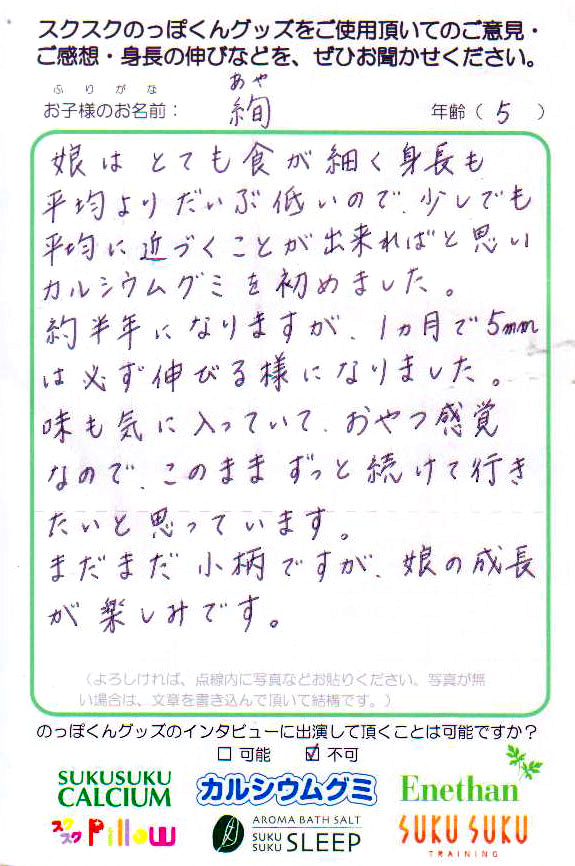 スクスクのっぽくんグッズをご使用頂いてのご意見・
ご感想・身長の伸びなどを、ぜひお聞かせください。
ふりがな
あや
お子様のお名前：
絢
年齢（ 5 ）
娘はとても食が細く身長も
平均よりだいぶ低いので、少しでも
平均に近づくことが出来ればと思い
カルシウムグミを初めました。
約半年になりますが、1ヵ月で5mm
は必ず伸びる様になりました。
味も気に入っていて、おやつ感覚
なので、このままずっと続けて行き
たいと思っています。
まだまだ小柄ですが、娘の成長
が楽しみです。
（よろしければ、点線内に写真などお貼りください、写真が無
い場合は、文章を書き込んで頂いて結構です。）
のっぽくんグッズのインタビューに出演して頂くことは可能ですか？
□ 可能 ☑ 不可
SUKUSUKU
CALCIUM
カルシウムグミ
Enethan
スクスク Pillow
AROMA BATH SALT
SUKU
SUKU SLEEP
SUKU SUKU
TRAINING